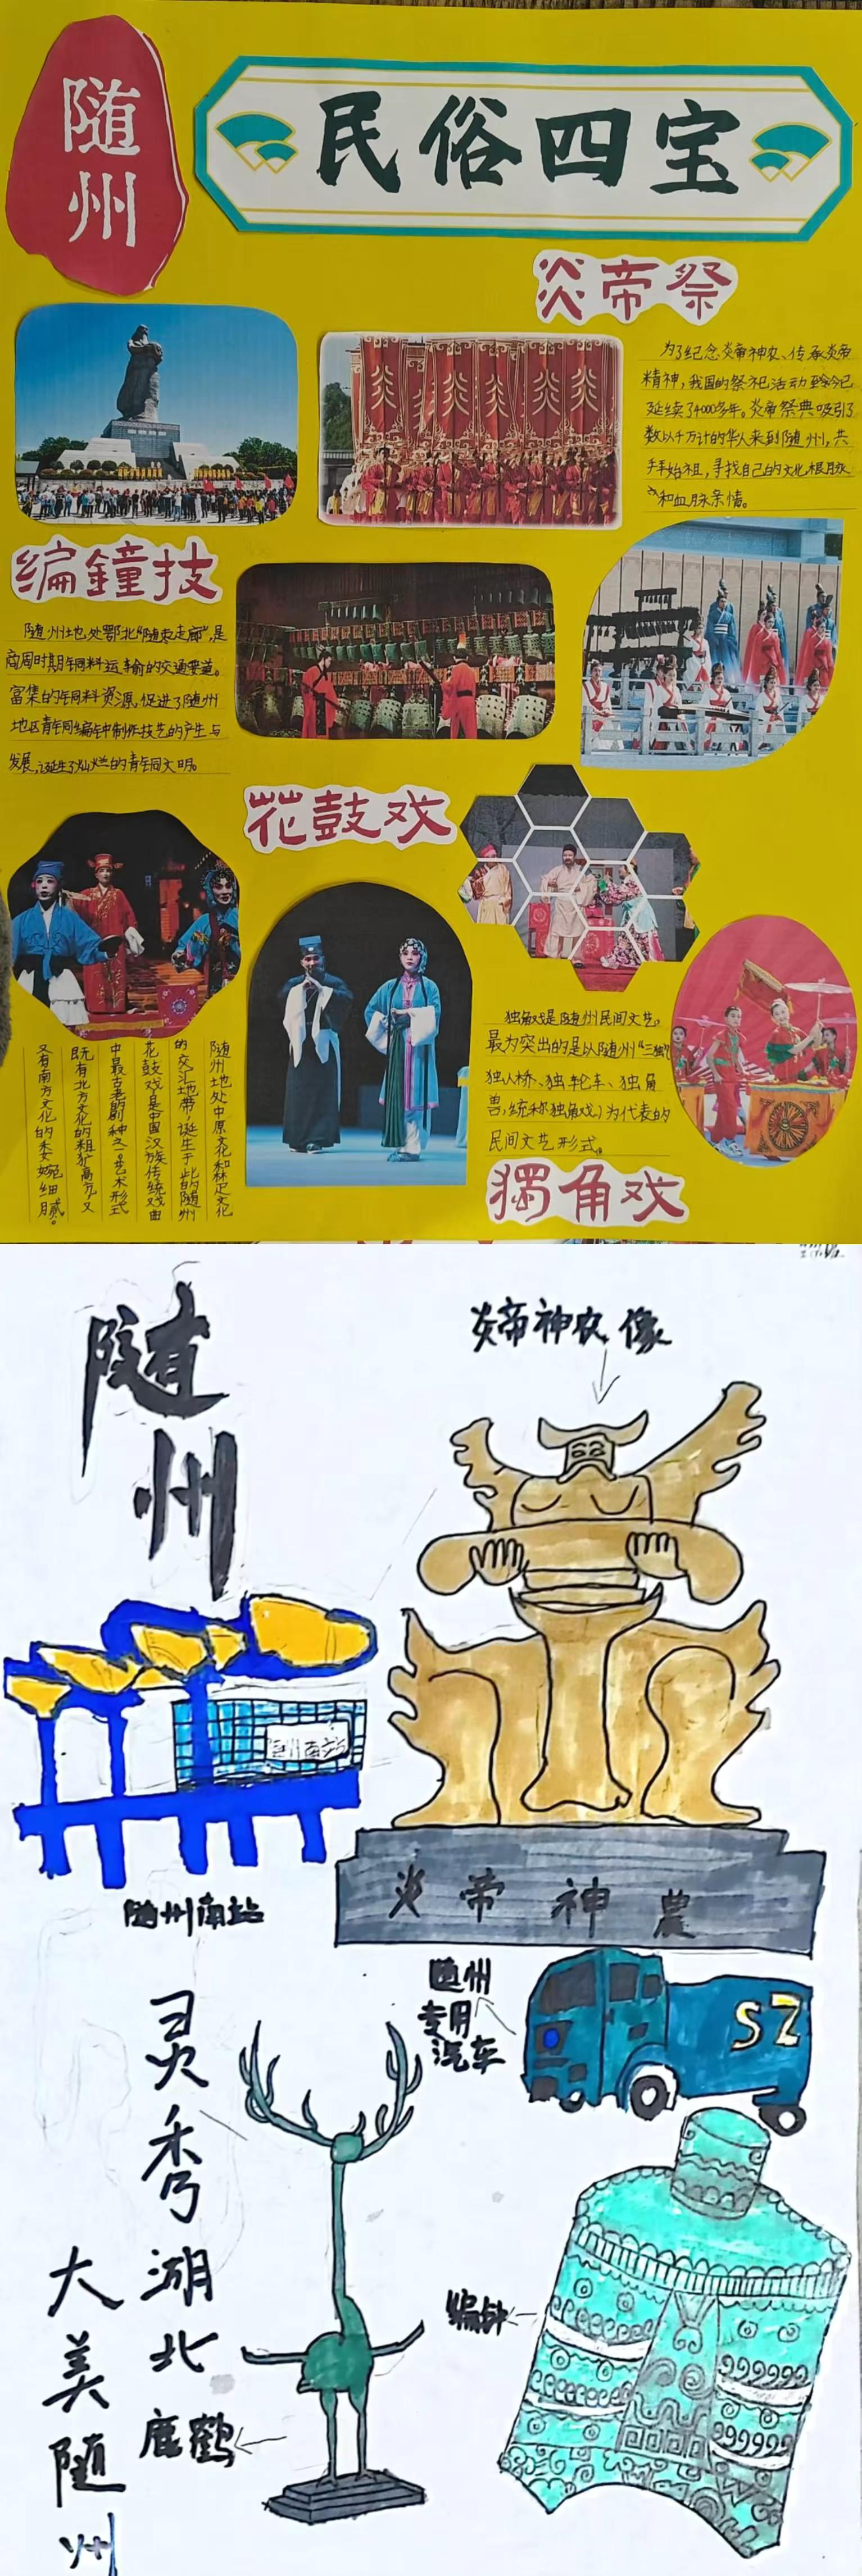 随州
民俗四宝
炎帝祭
为了纪念炎帝神农、传承炎帝
精神，我国的祭祀活动至今已
延续了4000多年。炎帝祭典吸引了
数以千万计的华人来到随州，共
拜始祖，寻找自己的文化根脉
和血脉亲情。
编鐘技
随州地处鄂北“随枣走廊”，是
商周时期铜料运输的交通要道。
富集的铜料资源，促进了随州
地区青铜编钟制作技艺的产生与
发展，诞生了灿烂的青铜文明。
花鼓戏
随州地处中原文化和楚文化
的交汇地带，诞生于此的随州
花鼓戏是中国汉族传统戏曲
中最古老的剧种之一。艺术形式
既有北方文化的粗犷高亢，又
又有南方文化的委婉细腻。
独角戏是随州民间文艺，
最为突出的是以随州“三独”(
独人桥、独轮车、独角
兽，统称独角戏)为代表的
民间文艺形式。
獨角戏
随州
炎帝神农像
随州南站
随州南站
炎帝神農
随州
专用
汽车
SZ
灵秀湖北
大美随州
编钟
鹿鹤